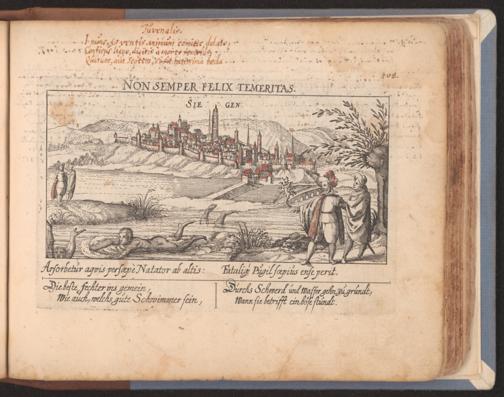 Juvenalis.
I nunc, et ventis animum committe, dolato,
Confisus ligno, digitis a morte
Quatuor, aut septem, si sit
208.
NON SEMPER FELIX TEMERITAS.
SIEGEN
Absorbetur aquis persæpe Natator ab altis:
Fataliq Pugil sæpius ense perit.
Die beste fechter ins gemein,
Wie auch, welchs gute Schwimmer sein,
Durchs Schwerd und Wasser gehn zu grundt,
Wann sie betrifft ein böse stundt.